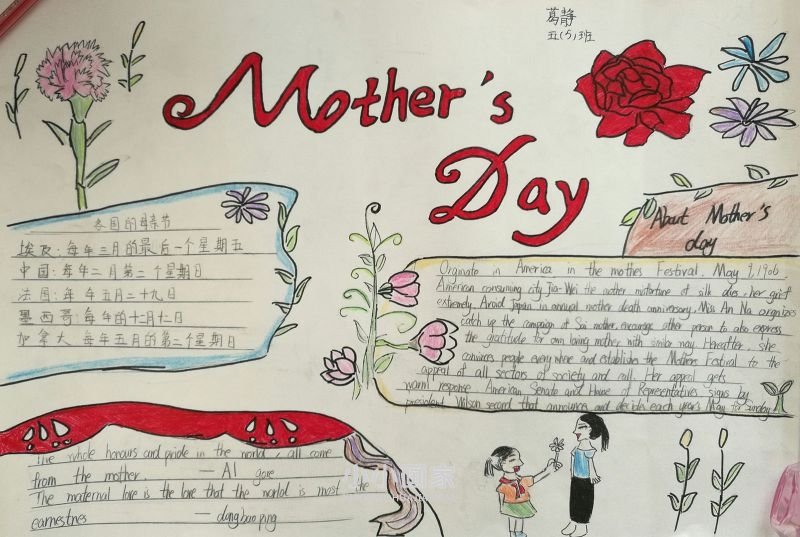 葛静
五(5)班
Mother's
Day
各国的母亲节
埃及:每年三月的最后一个星期五
中国:每年二月第二个星期日
法国:每年五月二十九日
墨西哥:每年的十二月七日
加拿大:每年五月的第二个星期日
About Mother's
day
Orginate in America in the mothes Festival. May 9,1906.
American consuming city Jia-Wei the mother misfortune of silk dies, her grief
extremely. Aroid Japan in annual mother death anniversary, Miss An Na organizes
catch up the campaign of Sai mother, encourage other person to also express
the gratitude for own loving mother with similar way. Hereafter, she
convinces people everywhere and establishes the Mothers Festival to the
appeal of all sectors of society and call. Her appeal gets
warm response. American Senate and House of Representatives signs by
president Wilson second that announces and decides each years May for Sunday
The whole honours and pride in the world, all come
from the mother. — Al gore
The maternal love is the love that the world is most the
earnestnes — dangbaoping
小小画家